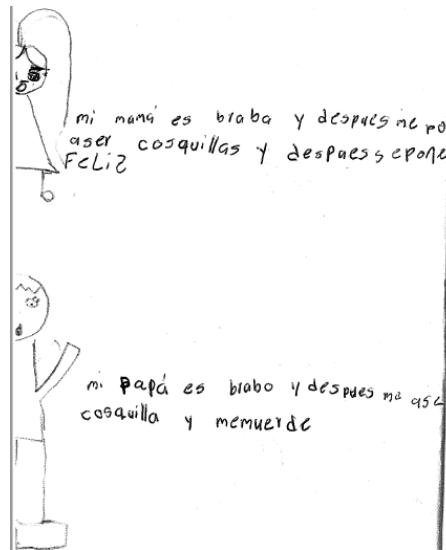 mi mamá es braba y despues me po
aser cosquillas y despues se pone
FeLiz
mi papá es brabo y despues me ase
cosquilla y memuerde